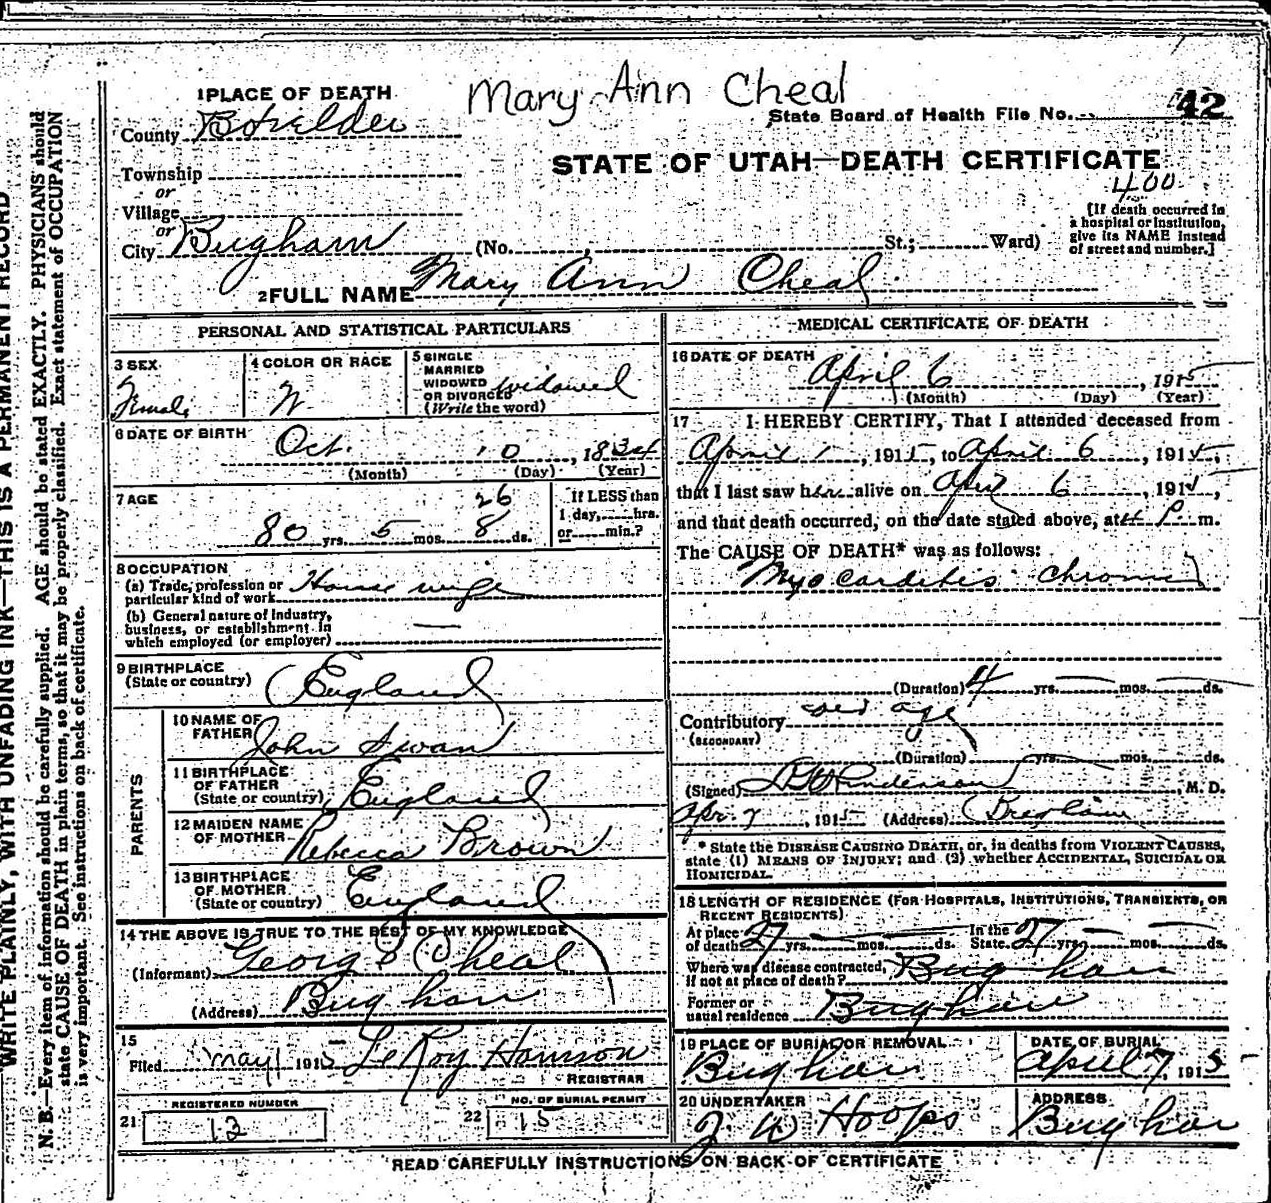 Mary Ann Cheal
1 PLACE OF DEATH
State Board of Health File No. 42
County Boxelder
STATE OF UTAH—DEATH CERTIFICATE
400
Township
or
Village
or
City Brigham (No. , St.; Ward)
[If death occurred in
a hospital or institution,
give its NAME instead
of street and number.]
2 FULL NAME Mary Ann Cheal
PERSONAL AND STATISTICAL PARTICULARS
3 SEX
Female
4 COLOR OR RACE
W
5 SINGLE
MARRIED
WIDOWED
OR DIVORCED
(Write the word)
widowed
6 DATE OF BIRTH Oct. 10, 1834
(Month) (Day) (Year)
7 AGE
26
80 yrs. 5 mos. 8 ds.
If LESS than
1 day, hrs.
or min.?
8 OCCUPATION
(a) Trade, profession or
particular kind of work House wife
(b) General nature of industry,
business, or establishment in
which employed (or employer) —
9 BIRTHPLACE
(State or country) England
PARENTS
10 NAME OF
FATHER John Swan
11 BIRTHPLACE
OF FATHER
(State or country) England
12 MAIDEN NAME
OF MOTHER Rebecca Brown
13 BIRTHPLACE
OF MOTHER
(State or country) England
14 THE ABOVE IS TRUE TO THE BEST OF MY KNOWLEDGE
(Informant) George Cheal
(Address) Brigham
15
Filed May 1 1915 LeRoy Hamson
REGISTRAR
21 REGISTERED NUMBER
12
22 NO. OF BURIAL PERMIT
15
MEDICAL CERTIFICATE OF DEATH
16 DATE OF DEATH
April 6, 1915
(Month) (Day) (Year)
17 I HEREBY CERTIFY, That I attended deceased from
April 1, 1915, to April 6, 1915,
that I last saw her alive on April 6, 1915,
and that death occurred, on the date stated above, at 4 P. m.
The CAUSE OF DEATH* was as follows:
Myocarditis chronic
(Duration) 4 yrs. — mos. — ds.
Contributory old age
(SECONDARY)
(Duration) yrs. mos. ds.
(Signed) , M. D.
Apr. 7, 1915 (Address) Brigham
* State the DISEASE CAUSING DEATH, or, in deaths from VIOLENT CAUSES,
state (1) MEANS OF INJURY; and (2) whether ACCIDENTAL, SUICIDAL OR
HOMICIDAL.
18 LENGTH OF RESIDENCE (FOR HOSPITALS, INSTITUTIONS, TRANSIENTS, OR
RECENT RESIDENTS)
At place
of death 27 yrs. — mos. — ds. In the
State 27 yrs. — mos. — ds.
Where was disease contracted,
if not at place of death? Brigham
Former or
usual residence Brigham
19 PLACE OF BURIAL OR REMOVAL
Brigham
DATE OF BURIAL
April 7, 1915
20 UNDERTAKER
J W Hoops
ADDRESS
Brigham
READ CAREFULLY INSTRUCTIONS ON BACK OF CERTIFICATE
WRITE PLAINLY, WITH UNFADING INK—THIS IS A PERMANENT RECORD
N. B.—Every item of information should be carefully supplied. AGE should be stated EXACTLY. PHYSICIANS should
state CAUSE OF DEATH in plain terms, so that it may be properly classified. Exact statement of OCCUPATION
is very important. See instructions on back of certificate.